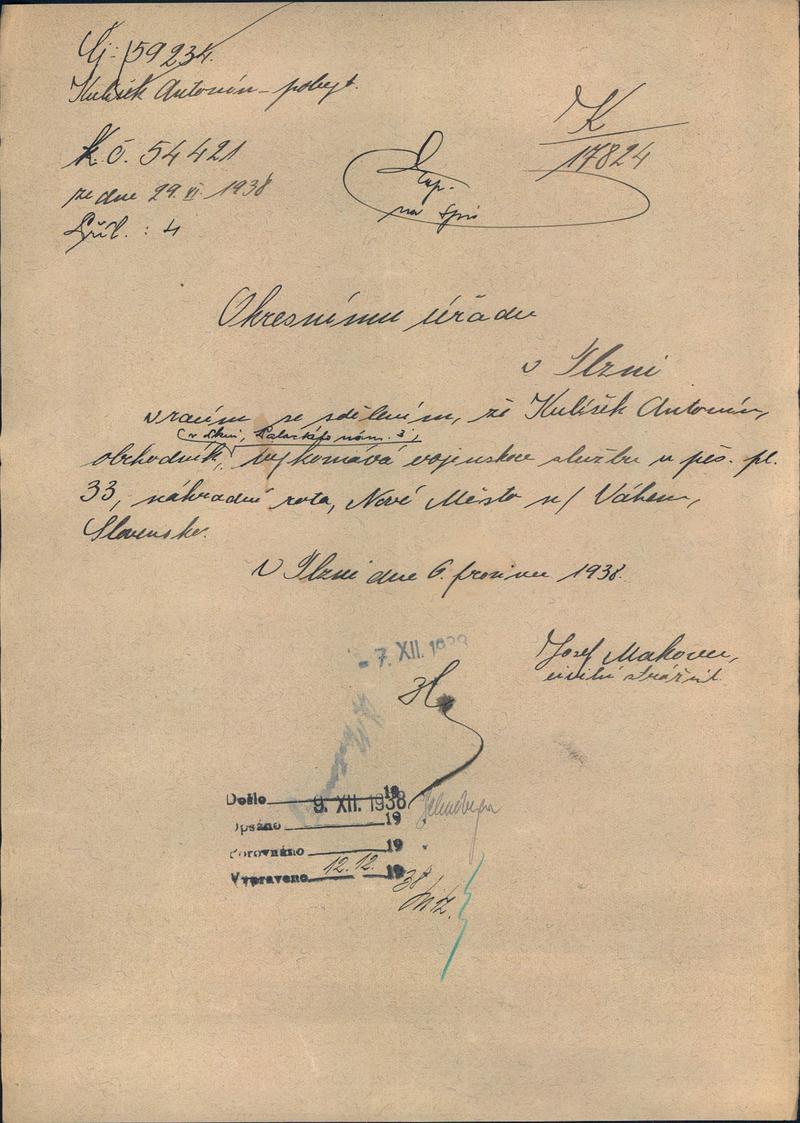 Čj: 59234.
Kulíšek Antonín – pobyt.
K
17824
k č. 54421
ze dne 29. VI. 1938
Příl. : 4
na spis
Okresnímu úřadu
v Plzni
vracím se sdělením, že Kulíšek Antonín,
(v Plzni, Palackého nám. 3.)
obchodník, vykonává vojenskou službu u pěš. pl.
33, náhradní rota, Nové Město n/ Váhem,
Slovensko.
V Plzni dne 6. prosince 1938.
Josef Makovec,
civilní strážník.
- 7. XII. 1938
Došlo 9. XII. 1938
Opsáno 19
Porovnáno 19
Vypraveno 12.12. 1938